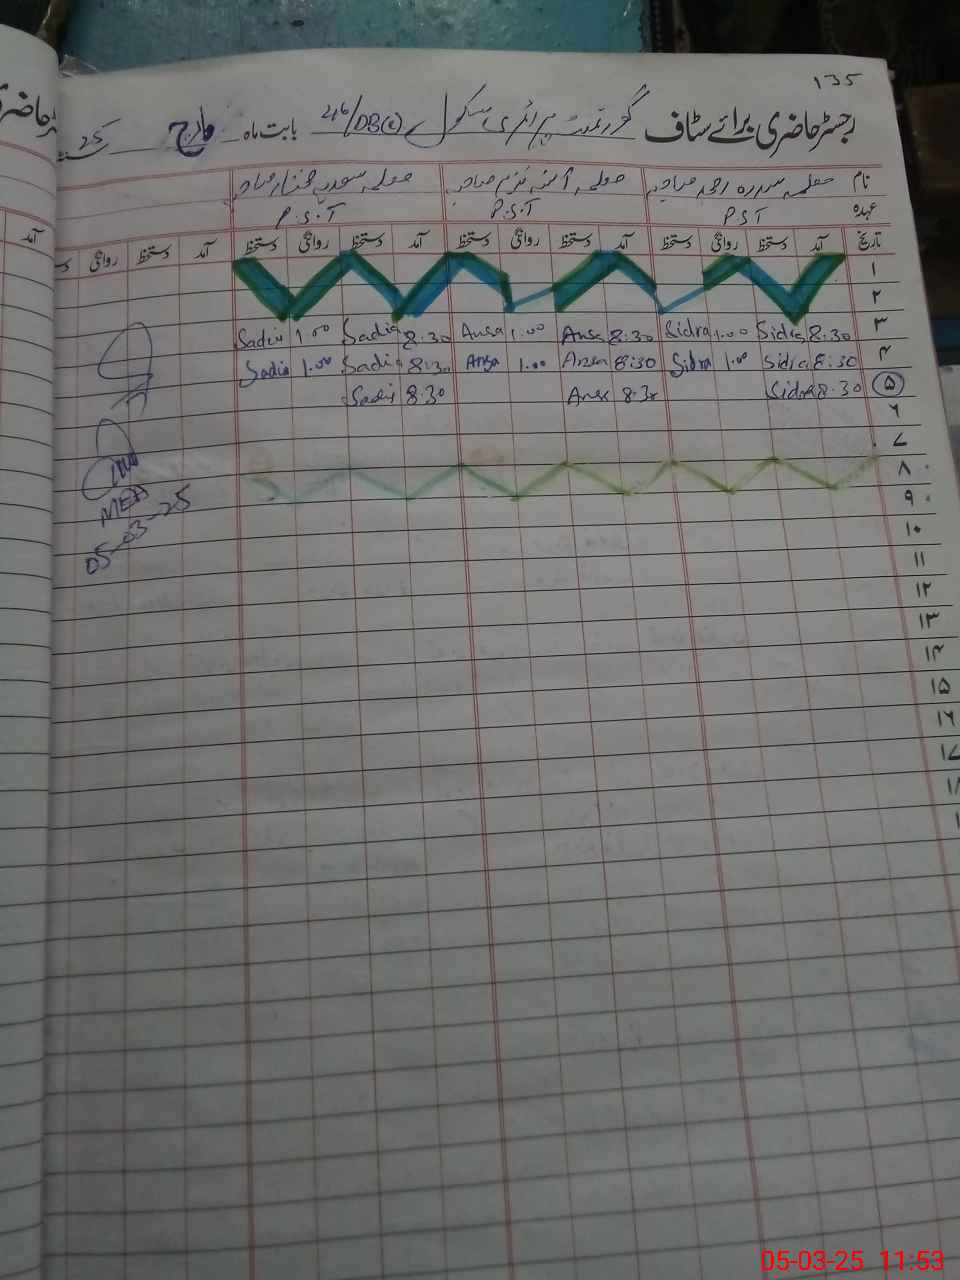 135
رجسٹر حاضری برائے سٹاف گورنمنٹ پرائمری سکول 46/DB(c) بابت ماہ مارچ 25
نام معلمہ سدرہ احمد صاحبہ معلمہ صاحبہ معلمہ سعدیہ مختار صاحبہ
عہدہ PST P.S.T P.S.T
تاریخ آمد دستخط روانگی دستخط آمد دستخط روانگی دستخط آمد دستخط روانگی دستخط آمد دستخط روانگی
آمد
۱
۲
۳ 8:30 Sidra 1.00 Sidra 8:30 Ansa 1.00 Ansa 8:30 Sadia 1.00 Sadia
۴ 8:30 Sidra 1.00 Sidra 8:30 Ansa 1.00 Ansa 8:30 Sadia 1.00 Sadia
۵ 8:30 Sidra 8:30 Ansa 8:30 Sadia
۶
۷
۸
۹
۱۰
۱۱
۱۲
۱۳
۱۴
۱۵
۱۶
۱۷
MEA
05-03-25
05-03-25 11:53